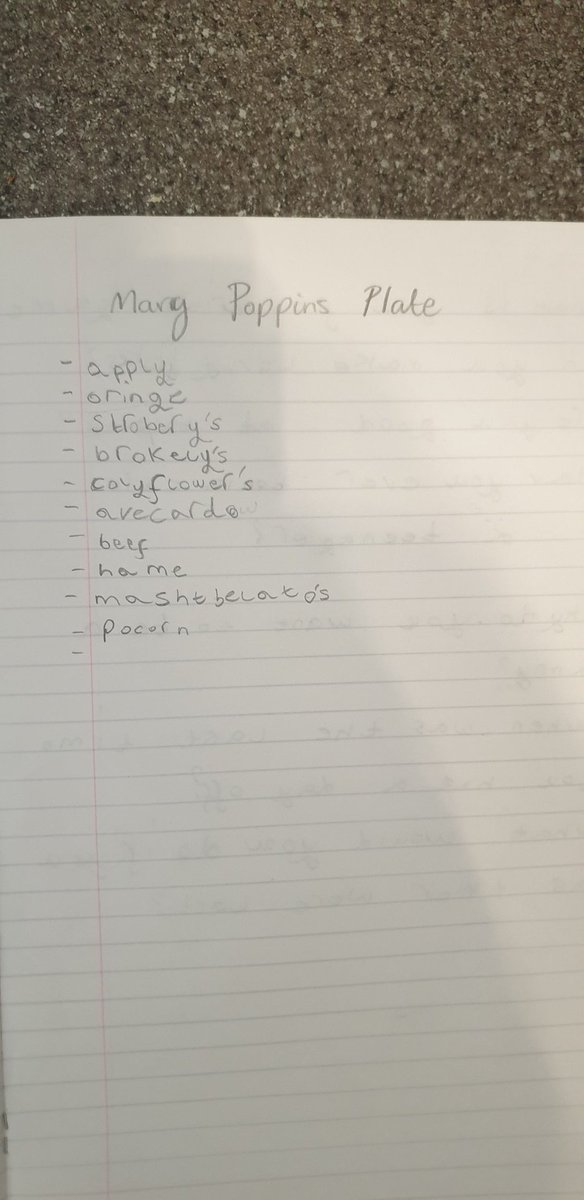 Mary Poppins Plate
- apply
- oringe
- Strobery's
- brokely's
- colyflower's
- avecardo
- beef
- hame
- mashtbelato's
- Pocorn
-